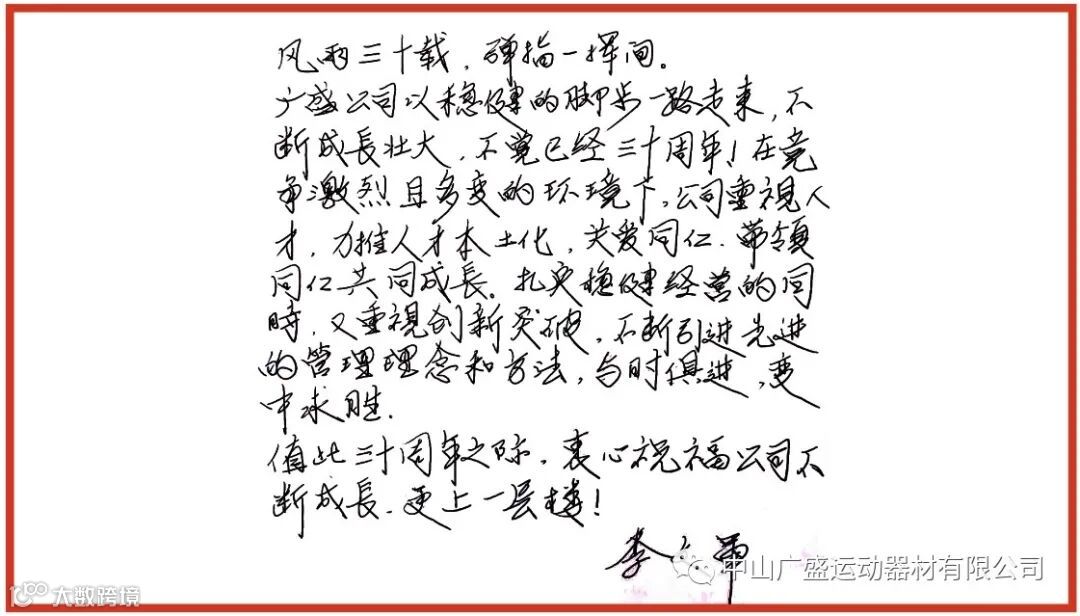 风雨三十载，弹指一挥间。
广盛公司以稳健的脚步一路走来，不
断成長壮大，不觉已经三十周年！在竞
争激烈且多变的环境下，公司重視人
才，力推人才本土化，关爱同仁．带领
同仁共同成長。扎实稳健经营的同
時，又重視创新突破，不断引进先进
的管理理念和方法，与时俱进，变
中求胜．
值此三十周年之际，衷心祝福公司不
断成長．更上一层楼！
李
中山广盛运动器材有限公司
大数跨境